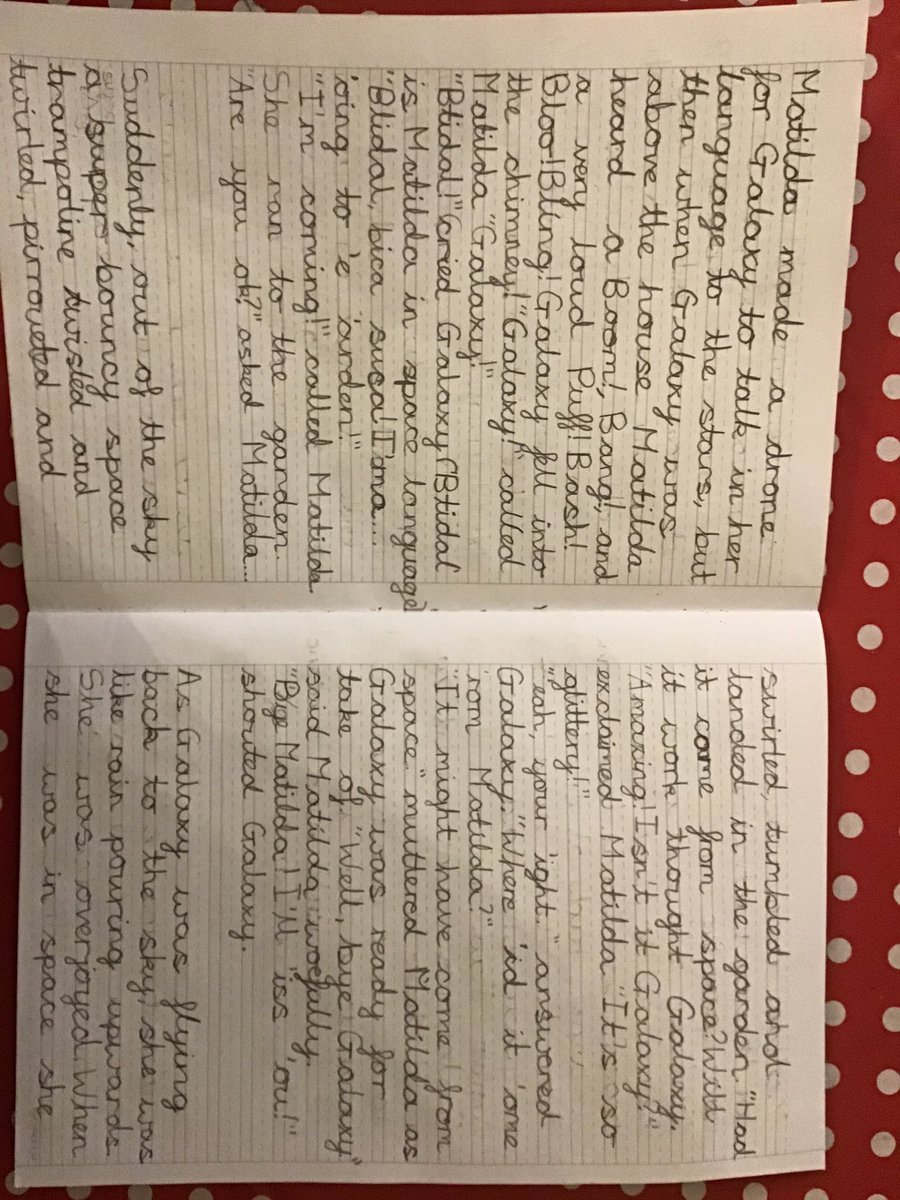 Matilda made a drone
for Galaxy to talk in her
language to the stars, but
then when Galaxy was
above the house Matilda
heard a Boom!, Bang!, and
a very loud Puff! Bash!
Bloo! Bling! Galaxy fell into
the chimney! "Galaxy!" called
Matilda "Galaxy!"
"Btidal!" cried Galaxy (Btidal
is Matilda in space language)
"Btidal, bica suca! I'ma...
'oing to 'e 'arden!"
"I'm coming!" called Matilda
She ran to the garden.
"Are you ok?" asked Matilda...
Suddenly, out of the sky
a super bouncy space
trampoline twisted and
twirled, pirroueted and
swirled, tumbled and
landed in the garden. "Had
it came from space? Will
it work thought Galaxy.
"Amazing! Isn't it Galaxy?"
exclaimed Matilda "It's so
glittery!"
"'eah, your 'ight." answered
Galaxy. "Where 'id it 'ome
'rom Matilda?"
"It might have come from
space" muttered Matilda as
Galaxy was ready for
take of. "Well, bye Galaxy"
said Matilda woefully.
"Bye Matilda! I'll 'iss 'ou!"
shouted Galaxy.
As Galaxy was flying
back to the sky, she was
like rain pouring upwards.
She was overjoyed. When
she was in space she